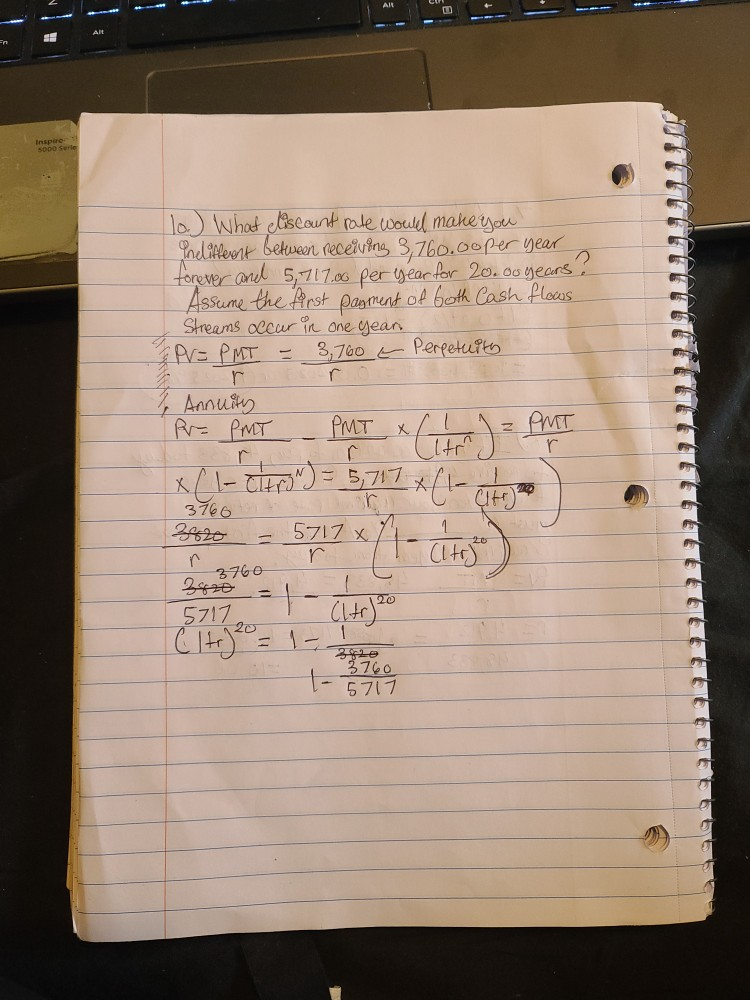 Alt
Ctrl
Fn
Alt
Inspiro
5000 Serie
1a.) What discount rate would make you
indifferent between receiving 3,760.00 per year
forever and 5,717.00 per year for 20.00 years?
Assume the first payment of both Cash flows
Streams occur in one year.
PV = PMT/r = 3,760/r ← Perpetuity
Annuity
PV = PMT/r - PMT/r × (1/(1+r^n)) = PMT/r
× (1 - 1/(1+r)^N) = 5,717/r × (1 - 1/(1+r)^20)
3760
3820/r = 5717/r × (1 - 1/(1+r)^20)
3760
3820/5717 = 1 - 1/(1+r)^20
(1+r)^20 = 1 - 1
3820
1 - 3760/5717